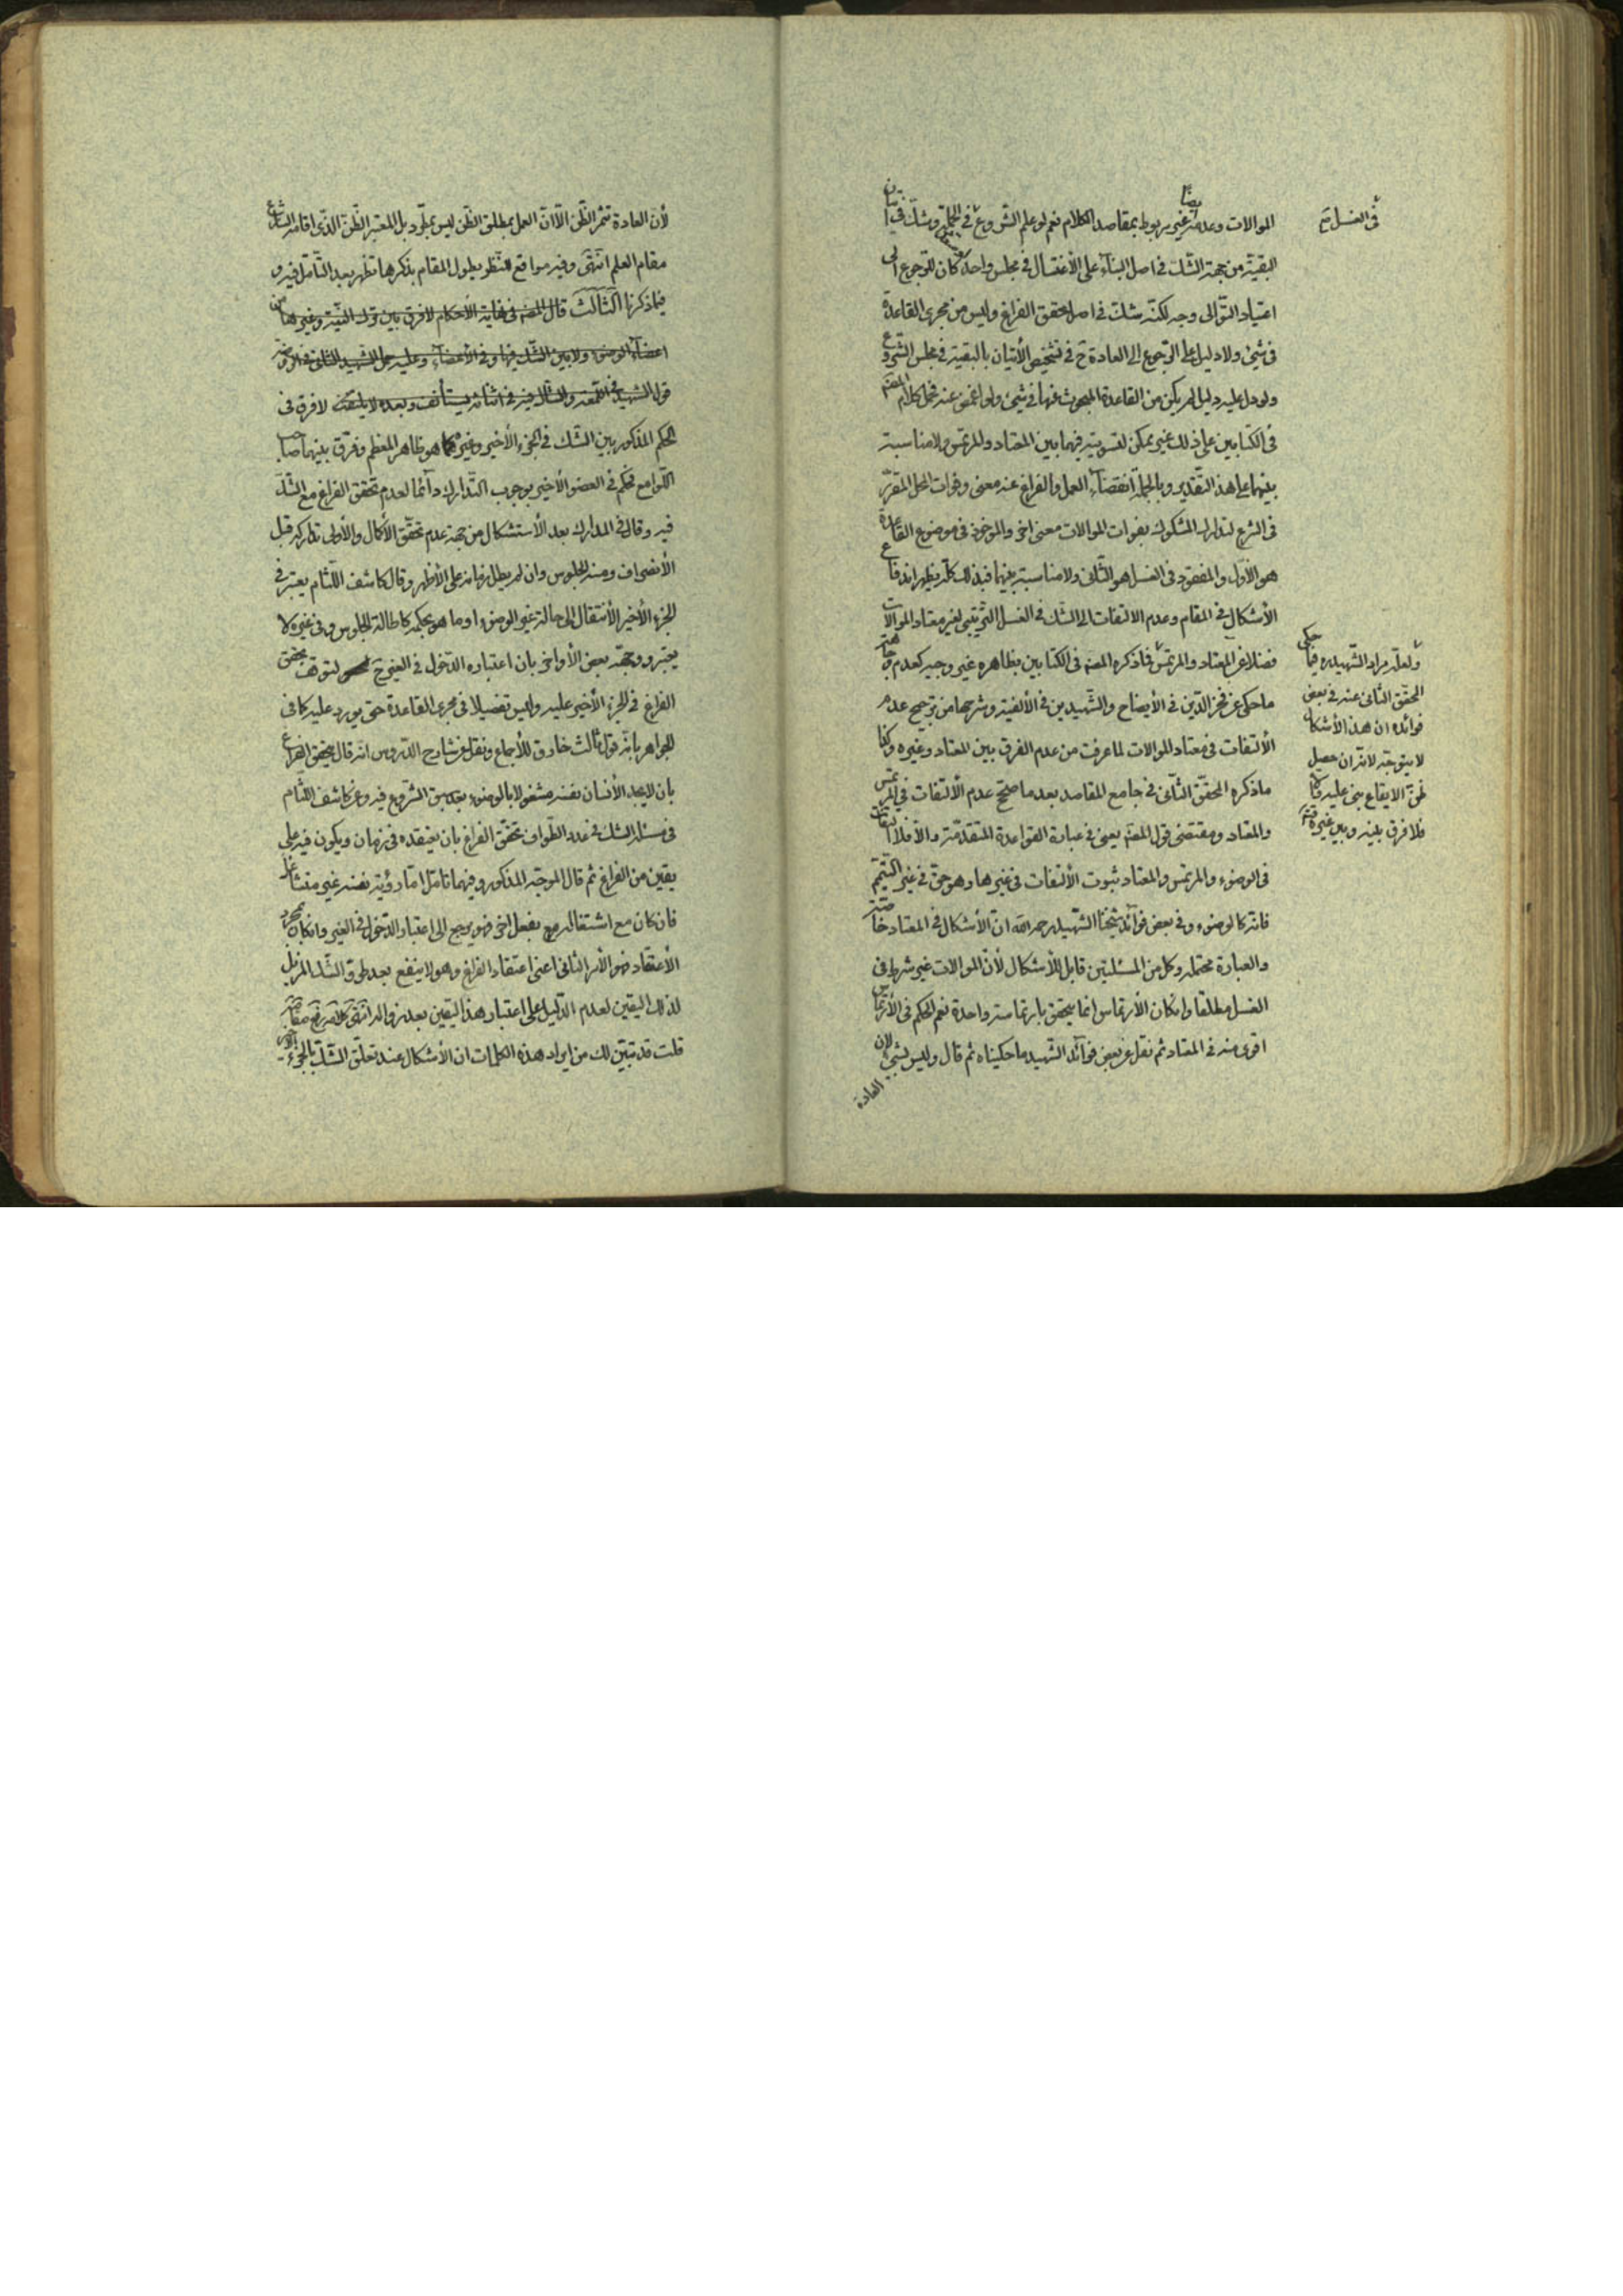 الموالات وعدمه غير مربوط بمقاصد الكلام نعم لو علم الشروع في الجملة وشك في اتيان
البقية من جهة الشك في اصل البناء على الاغتسال في مجلس واحد كان للرجوع الى
اعتياد التوالى وجه لكنه شك في اصل تحقق الفراغ وليس من مجرى القاعدة
في شيئ ولا دليل على الرجوع الى العادة ح في تشخيص الأتيان بالبقية في مجلس الشروع
ولو دل عليه دليل لم يكن من القاعدة المبحوث عنها في شيئ ولو اغمض عنه فحمل كلام المصنف
في الكتابين على ذلك غير ممكن لتسويته فيهما بين المعتاد والمرتمس ولا مناسبة
بينهما على هذا التقدير وبالجملة انقضاء العمل والفراغ عنه معنى وفوات المحل المقرر
في الشرع لتدارك المشكوك بفوات الموالات معنى اخر والموخوذ في موضوع القاعدة
هو الأول والمفقود في الغسل هو الثانى ولا مناسبة بينهما فبذلك كله يظهر اندفاع
الأشكال في المقام وعدم الالتفات الى الشك في الغسل الترتيبى لغير معتاد الموالات
فضلا عن المعتاد والمرتمس فما ذكره المصنف في الكتابين بظاهره غير وجيه كعدم وجاهة
ما حكى عن فخر الدين في الأيضاح والشهيدين في الألفية وشرحها من ترجيح عدم
الألتفات في معتاد الموالات لما عرفت من عدم الفرق بين المعتاد وغيره وكذا
ما ذكره المحقق الثانى في جامع المقاصد بعد ما صحح عدم الألتفات في المرتمس
والمعتاد ومقتضى قول المصنف يعنى في عبارة القواعد المتقدمة والا فلا التفات
في الوضوء والمرتمس والمعتاد ثبوت الألتفات في غيرها وهو حق في غير التيمم
فانه كالوضوء وفي بعض فوائد شيخنا الشهيد رحمه الله ان الأشكال في المعتاد خاصة
والعبارة محتملة وكل من المسئلتين قابل للأشكال لأن الموالات غير شرط في
الغسل مطلقا وان كان الأرتماس انما يتحقق بارتماسة واحدة نعم الحكم في الأرتماس
اقوى منه في المعتاد ثم نقل عن بعض فوائد الشهيد ما حكيناه ثم قال وليس بشيئ لان
العادة
في الغسل
ولعله مراد الشهيد ره فيما حكى
المحقق الثانى عنه في بعض
فوائده ان هذا الأشكال
لا يتوجه لانه ان حصل
ظن الايقاع بنى عليه
فلا فرق بينه وبين غيره
لأن العادة تثمر الظن الا ان العمل بمطلق الظن ليس بمطرد بل المعتبر الظن الذى اقامه الشارع
مقام العلم انتهى وفيه مواقع للنظر يطول المقام بذكرها تظهر بعد التأمل فيه و
فيما ذكرنا الثالث قال المصنف في نهاية الأحكام لا فرق بين ترك النية وغيرها من
اعضاء الوضوء ولا بين الشك فيها وفي الأعضاء وعليه حمل الشهيد الثانى في الروضة
قول الشهيد في اللمعة والشاك فيه في اثنائه يستأنف وبعده لا يلتفت لا فرق في
الحكم المذكور بين الشك في الجزء الأخير وغيره كما هو ظاهر المعظم وفرق بينهما صاحب
اللوامع فحكم في العضو الأخير بوجوب التدارك دائما لعدم تحقق الفراغ مع الشك
فيه وقال في المدارك بعد الأستشكال من جهة عدم تحقق الأكمال والأولى تداركه قبل
الأنصراف ومنه الجلوس وان لم يطل زمانه على الأظهر وقال كاشف اللثام يعتبر في
الجزء الأخير الأنتقال الى حالة غير الوضوء او ما هو بحكمه كاطالة الجلوس وفي غيره لا
يعتبر ووجهه بعض الأواخر بان اعتباره الدخول في الغير ح لتوقف تحقق
الفراغ في الجزء الأخير عليه وليس تفصيلا في مجرى القاعدة حتى يورد عليه كما في
الجواهر بانه قول ثالث خارق للأجماع ونقل عن شارح الدروس انه قال بتحقق الفراغ
بان لا يجد الأنسان نفسه مشغولا بالوضوء بعد سبق الشروع فيه وعن كاشف اللثام
في مسئلة الشك في عدد الطواف تحقق الفراغ بان يعتقده في زمان ويكون فيه على
يقين من الفراغ ثم قال الموجه المذكور وفيهما تامل اما رؤية نفسه غير متشاغل
فان كان مع اشتغاله بفعل اخر فهو يرجع الى اعتبار الدخول في الغير وان كان بمجرد
الأعتقاد فهو الأمر الثانى اعنى اعتقاد الفراغ وهو لا ينفع بعد طرو الشك المزيل
لذلك اليقين لعدم الدليل على اعتبار هذا اليقين بعد زواله انتهى كلامه رفع مقامه
قلت قد تبين لك من ايراد هذه الكلمات ان الأشكال عند تعلق الشك بالجزء الأخير